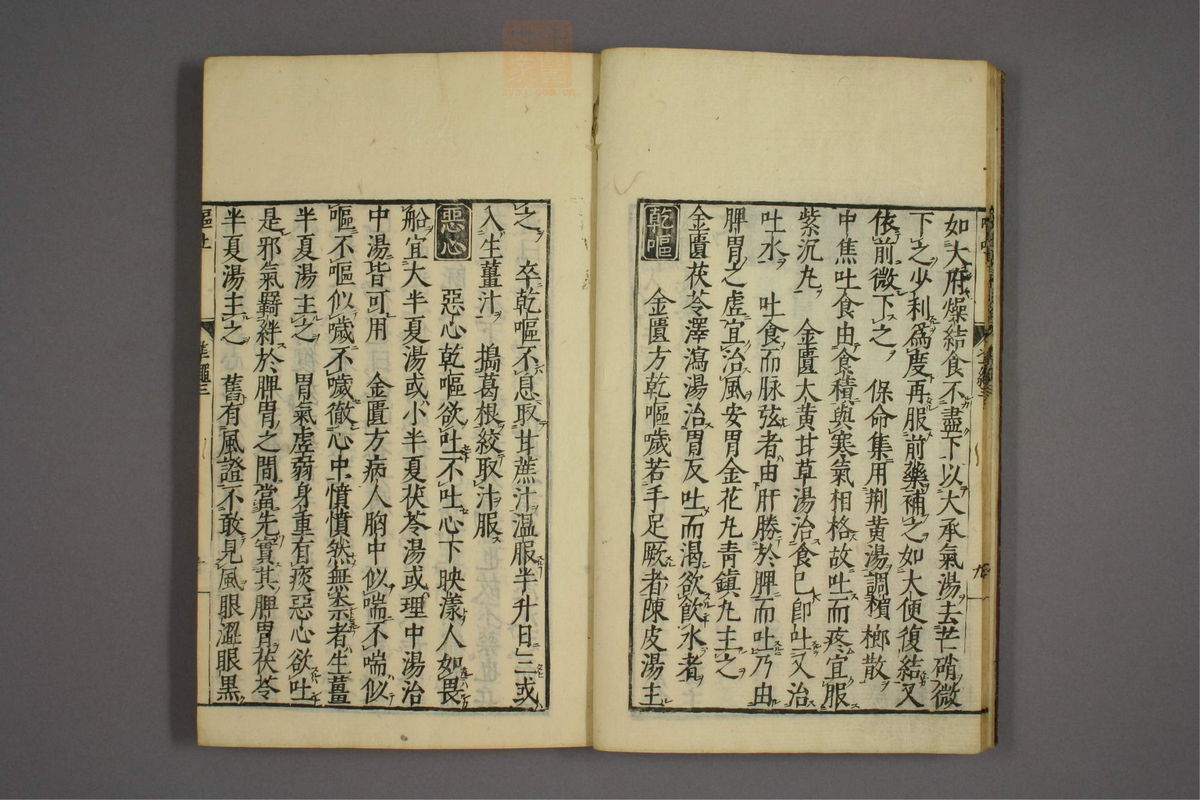 如大府燥結食不盡下以大承氣湯去芒硝微
下之少利爲度再服前藥補之如大便復結又
依前微下之　保命集用荆黄湯調檳榔散
中焦吐食由食積與寒氣相格故吐而疼宜服
紫沉丸　金匱大黄甘草湯治食已卽吐又治
吐水　吐食而脉弦者由肝勝於脾而吐乃由
脾胃之虚宜治風安胃金花丸青鎮丸主之
金匱茯苓澤瀉湯治胃反吐而渴欲飲水者
乾嘔　金匱方乾嘔噦若手足厥者陳皮湯主
之　卒乾嘔不息取甘蔗汁温服半升日三或
入生薑汁　搗葛根絞取汁服
惡心　惡心乾嘔欲吐不吐心下映漾人如畏
船宜大半夏湯或小半夏茯苓湯或理中湯治
中湯皆可用　金匱方病人胸中似喘不喘似
嘔不嘔似噦不噦徹心中憤憤然無柰者生薑
半夏湯主之　胃氣虚弱身重有痰惡心欲吐
是邪氣羈絆於脾胃之間當先實其脾胃茯苓
半夏湯主之　舊有風證不敢見風眼澀眼黒
嘔吐　準繩三